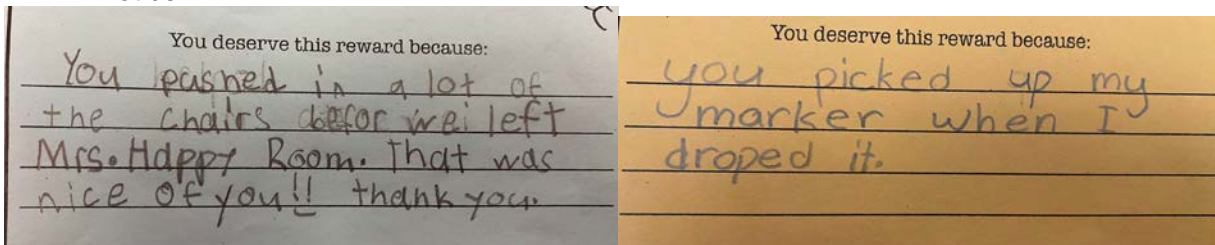 You deserve this reward because:
You pushed in a lot of
the chairs befor we left
Mrs. Happy Room. That was
nice of you!! thank you.
You deserve this reward because:
you picked up my
marker when I
droped it.